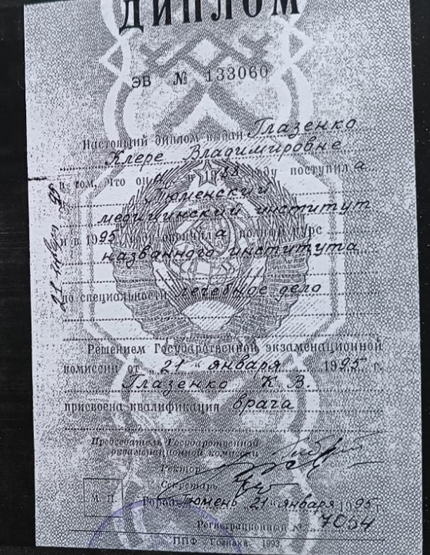 ДИПЛОМ
ЭВ № 133060
Настоящий диплом выдан Глазенко
Кларе Владимировне
в том, что она в 1988 году поступила
в Тюменский
медицинский институт
и в 1995 году окончила полный курс
названного института
по специальности лечебное дело
Решением Государственной экзаменационной
комиссии от „21" января 1995 г.
Глазенко К. В.
присвоена квалификация врача
Председатель Государственной
экзаменационной комиссии
Ректор
Секретарь
М. П.
Город Тюмень 21 января 1995
Регистрационный № 7054
ППФ Гознака. 1993.